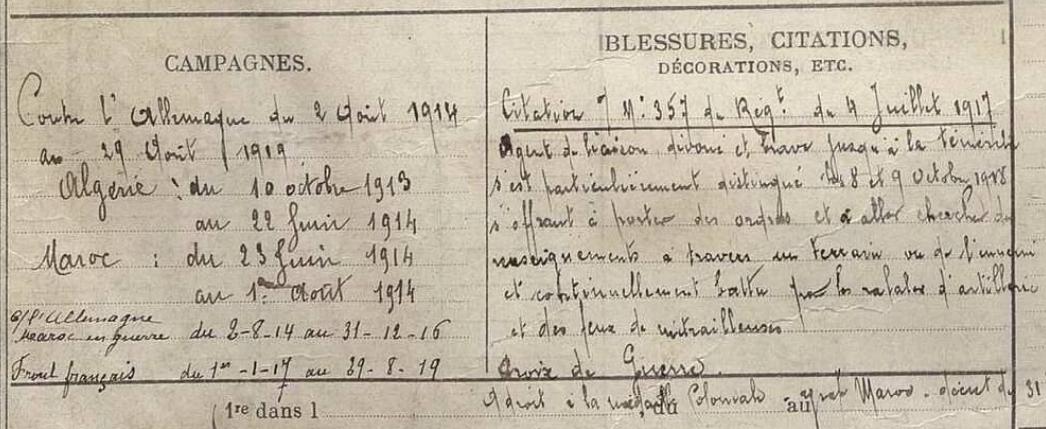 CAMPAGNES.
Contre l'Allemagne du 2 Août 1914
au 29 Août 1919
Algérie : du 10 octobre 1913
au 22 Juin 1914
Maroc : du 23 Juin 1914
au 1er Août 1914
c/ l'Allemagne
Maroc en guerre du 2-8-14 au 31-12-16
Front français du 1er-1-17 au 29-8-19
BLESSURES, CITATIONS,
DÉCORATIONS, ETC.
Citation N° 357 du Régt. du 4 Juillet 1917
Agent de liaison dévoué et brave jusqu'à la témérité
s'est particulièrement distingué les 8 et 9 Octobre 1918
s'offrant à porter des ordres et à aller chercher des
renseignements à travers un terrain vu de l'ennemi
et continuellement battu par les rafales d'artillerie
et des feux de mitrailleuses
Croix de Guerre.
A droit à la médaille Coloniale Maroc. décret du 31
(1re dans l
du
au